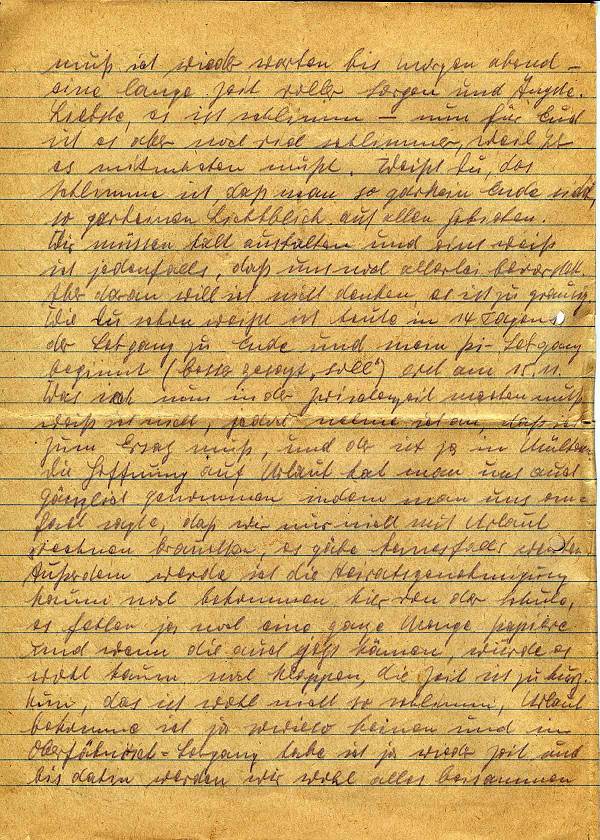 muß ich wieder warten bis morgen abend –
eine lange Zeit voller Sorgen und Ängste.
Liebste, es ist schlimm – nun für Euch
ist es aber noch viel schlimmer, weil Ihr
es mitmachen müßt. Weißt Du, das
schlimme ist, daß man so garkein Ende sieht,
so garkeinen Lichtblick auf allen Gebieten.
Wir müssen halt aushalten und eins weiß
ich jedenfalls, daß uns noch allerlei bevorsteht.
Aber daran will ich nicht denken, es ist zu grausig.
Wie Du schon weißt ist heute in 14 Tagen
der Lehgang zu Ende und mein Lehgang
beginnt (besser gesagt „soll") erst am 15. 11.
Was ich nun in der Zwischenzeit machen muß
weiß ich nicht, jedoch nehme ich an daß ich
zum Ersatz muß, und der ist ja in
die Hoffnung auf Urlaub hat man uns auch
gänzlich genommen indem man uns ein-
fach sagte, daß wir nur nicht mit Urlaub
rechnen brauchten, es gäbe keinesfalls welchen.
Außerdem werde ich die Heiratsgenehmigung
kaum noch bekommen hier von der Schule,
es fehlen ja noch eine ganze Menge Papiere
und wenn die auch jetzt kämen, würde es
wohl kaum noch klappen, die Zeit ist zu kurz.
Nun, das ist wohl nicht so schlimm, Urlaub
bekomme ich ja sowieso keinen und im
Oberfähnrich-Lehgang habe ich ja wieder Zeit und
bis dahin werden wir wohl alles beisammen